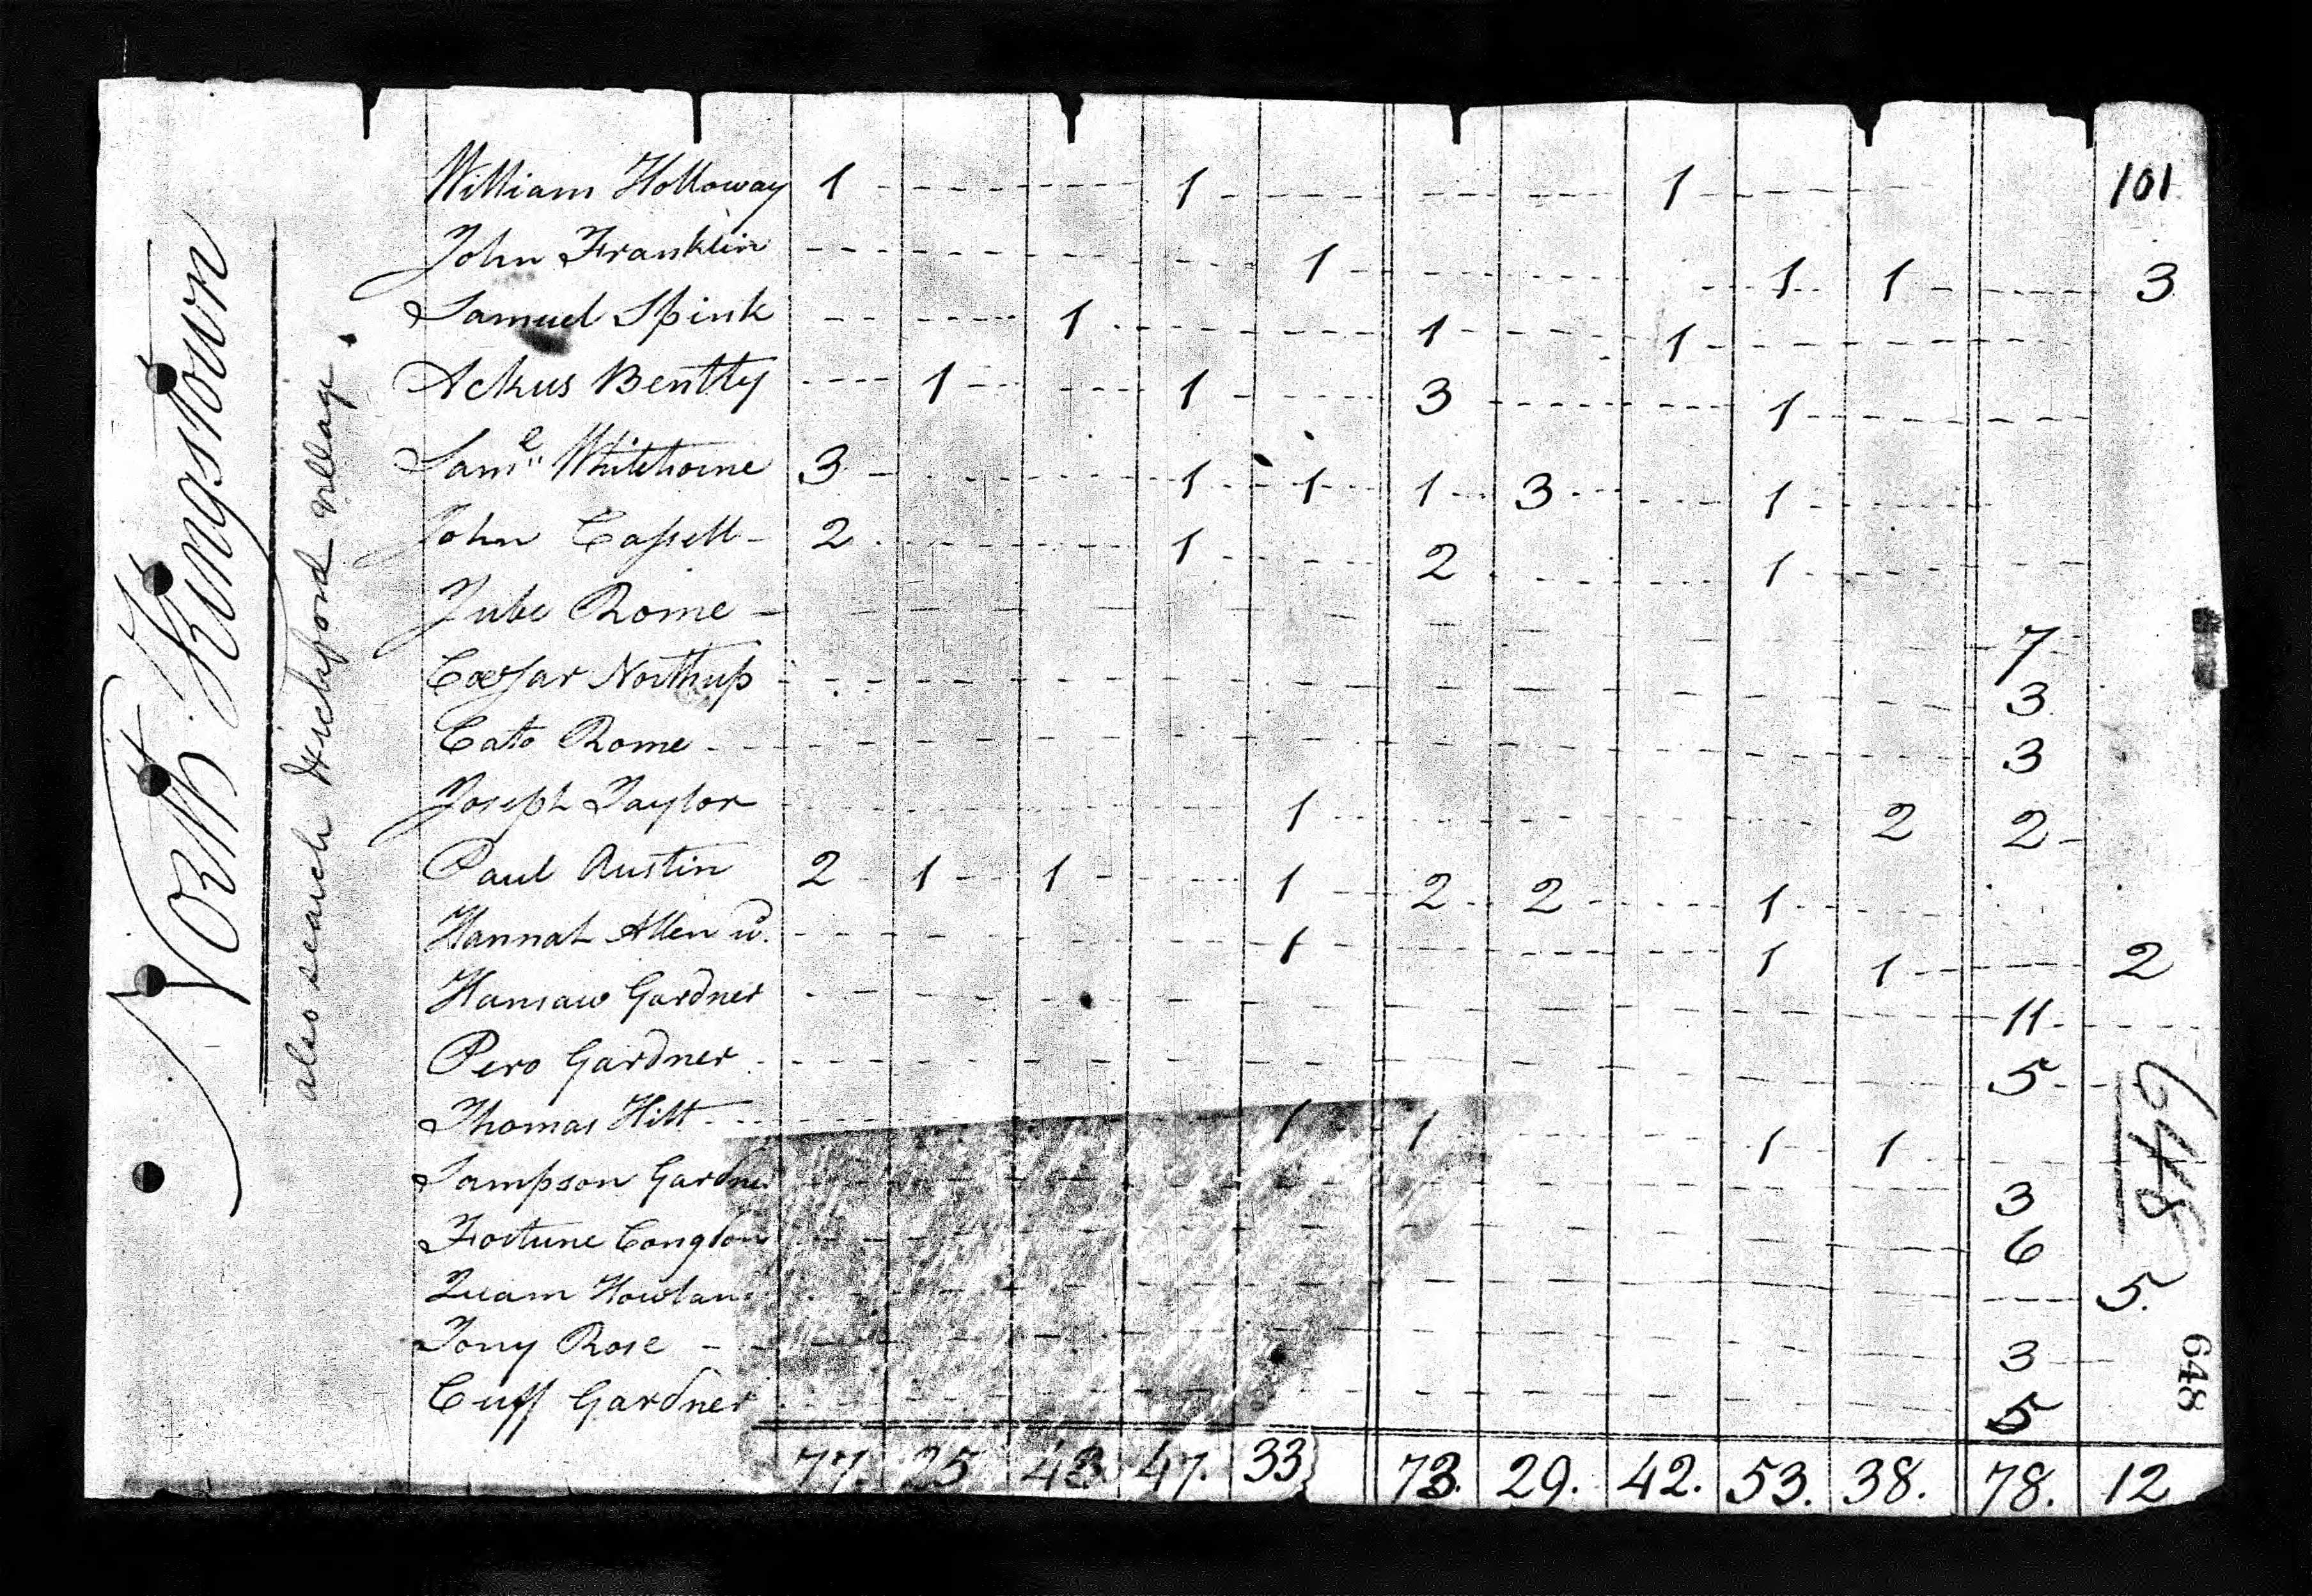 North Kingstown
also search Wickford village.
William Holloway 1 1 1 101
John Franklin 1 1 1 3
Samuel Spink 1 1 1
Ackus Bentty 1 1 3 1
Sam.l Whitehorne 3 1 1 1 3 1
John Cassell 2 1 2 1
Jube Rome 7
Cæsar Northup 3
Cato Rome 3
Joseph Taylor 1 2 2
Paul Austin 2 1 1 1 2 2 1
Hannah Allen w. 1 1 1 2
Hansaw Gardner 11
Pero Gardner 5
Thomas Hill 1 1 1 1
Sampson Gardner 3
Fortune Congdon 6
Quam Howland 5.
Tony Rose 3
Cuff Gardner 5
77. 25 43 47. 33 73. 29. 42. 53. 38. 78. 12
648
648